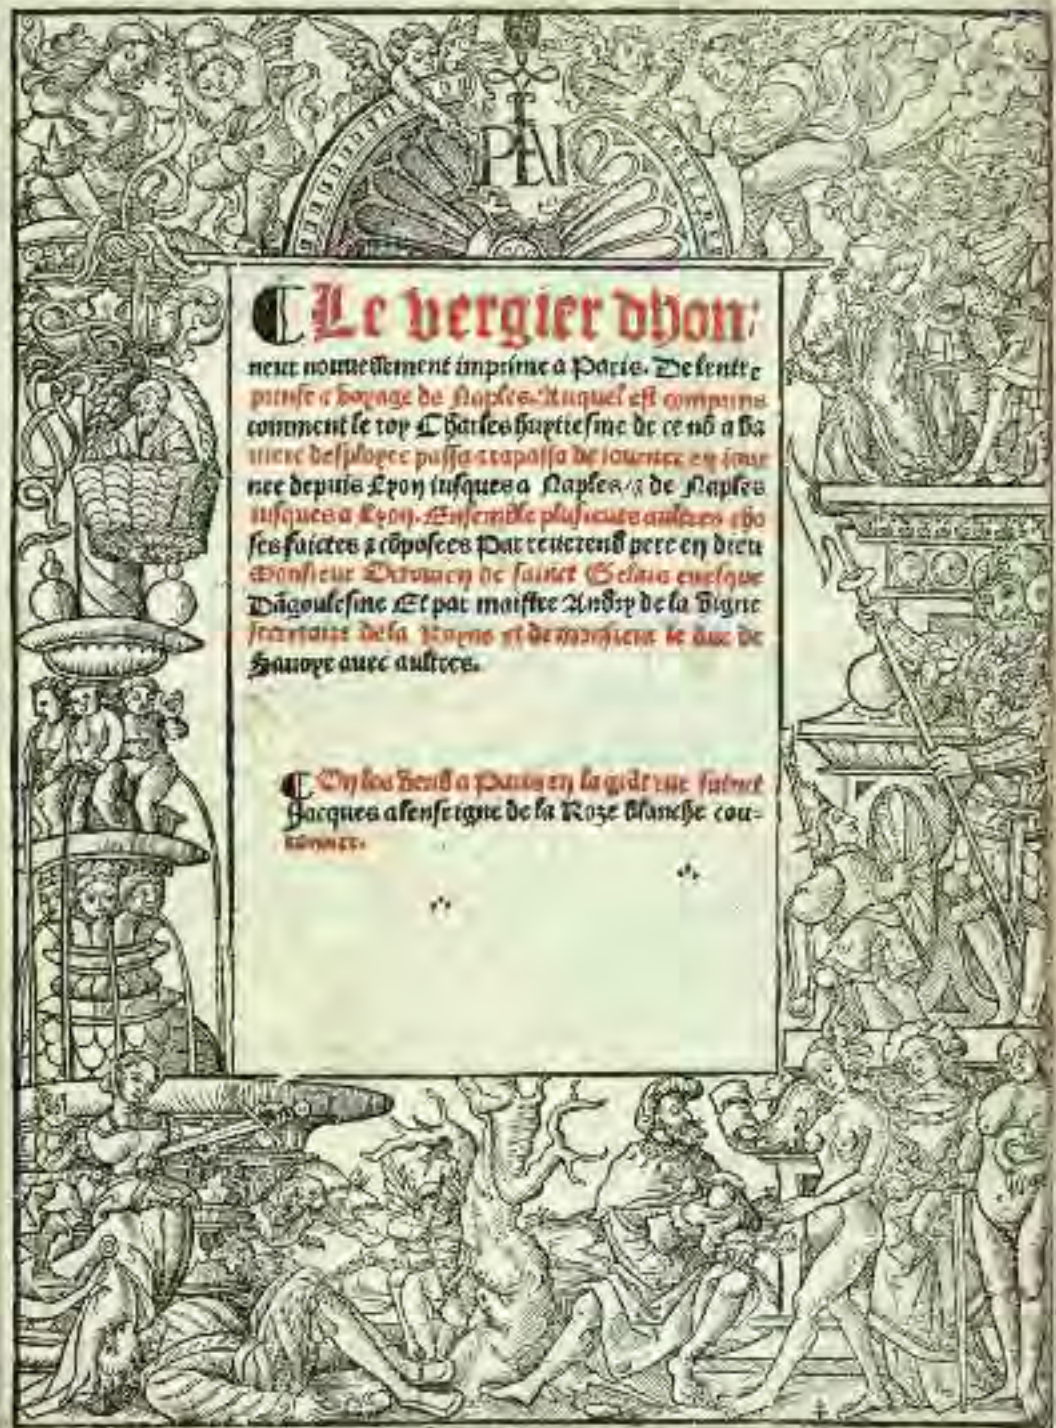 ¶ Le vergier dhon-
neur nouuellement imprime a Paris. De lentre
prinse & voyage de Naples. Auquel est comprins
comment le roy Charles huytiesme de ce nõ a ba
niere desployee passa & rapassa de iournee en iour
nee depuis Lyon iusques a Naples / & de Naples
iusques a Lyon. Ensemble plusieurs aultres cho
ses faictes & cõposees Par reuerend pere en dieu
Monsieur Octouien de sainct Gelais euesque
Dãgoulesme Et par maistre Andry de la Vigne
secretaire de la Royne et de monsieur le duc de
Sauoye auec aultres.
¶ On les vend a Paris en la grãt rue sainct
Jacques a lenseigne de la Roze blanche cou-
ronnee.